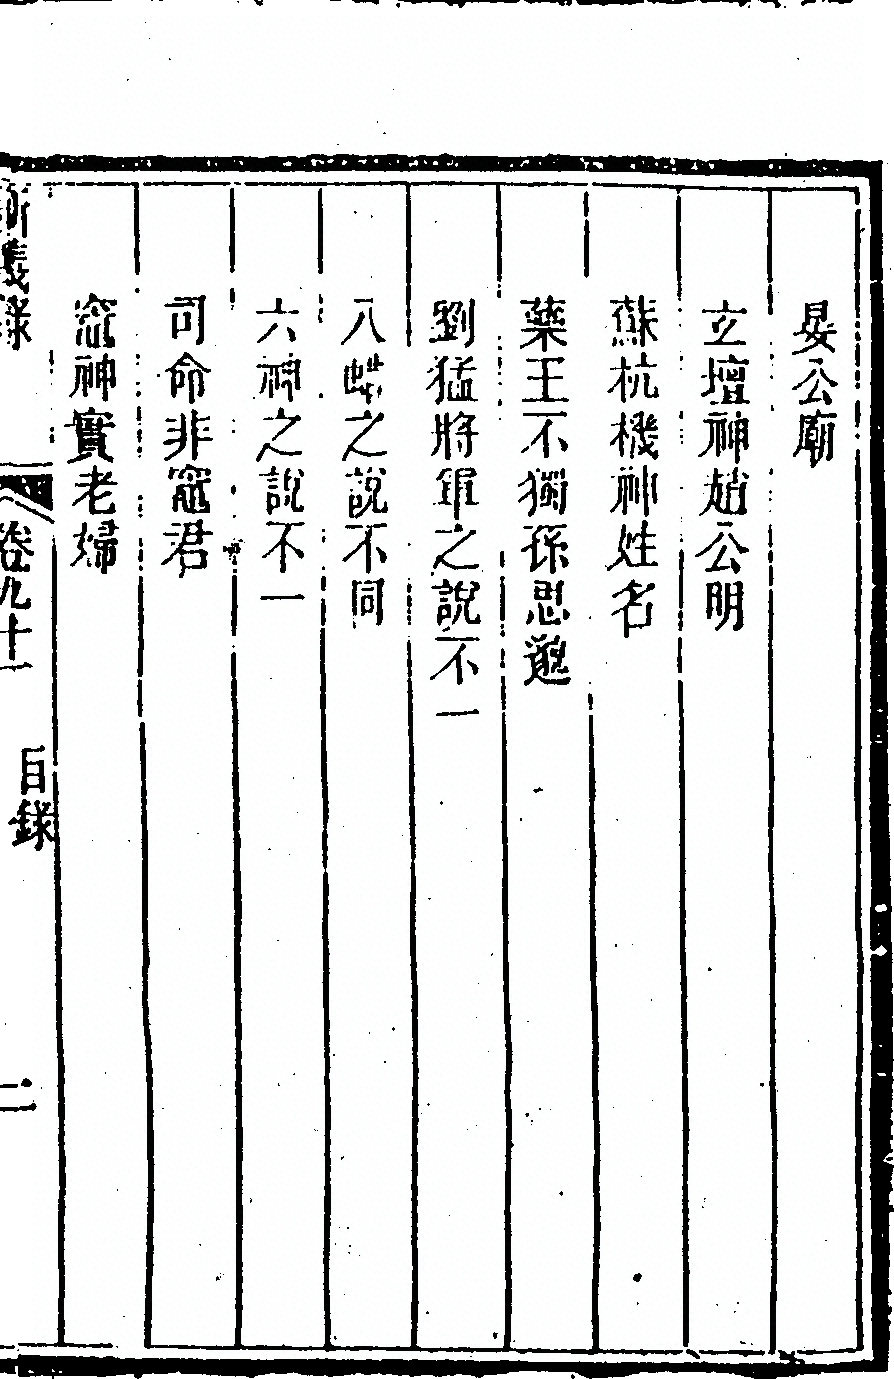 晏公廟
立壇神趙公明
蘇杭機神姓名
藥王不獨孫思邈
劉猛將軍之說不一
八蜡之說不同
六神之說不一
司命非竈君
竈神實老婦
新義錄
卷九十一
目錄
二